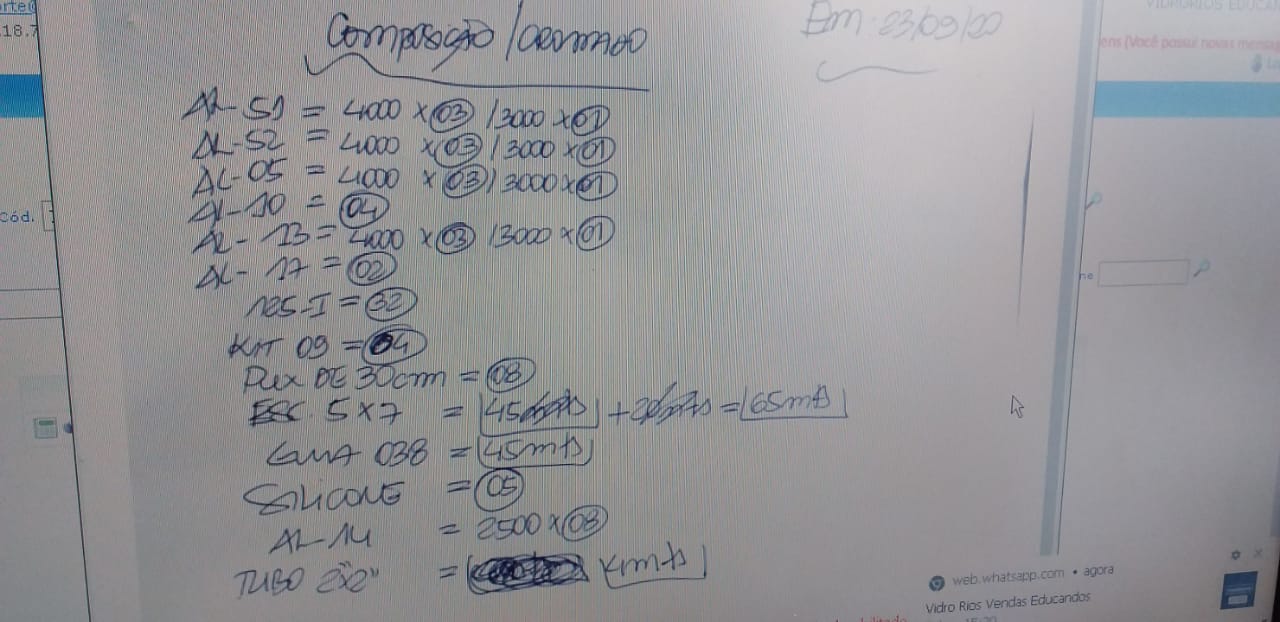 Composição /
Em: 23/09/20
AL-51 = 4000 x 03 / 3000 x 01
AL-52 = 4000 x 03 / 3000 x 01
AL-05 = 4000 x 03 / 3000 x 01
AL-10 = 04
AL-13 = 4000 x 03 / 3000 x 01
AL-17 = 02
= 32
KIT 09 = 04
PUX DE 30cm = 08
ESC. 5x7 = 45 + = 65mts
038 = 45mts
SILICONE = 05
AL-14 = 2500 x 08
TUBO 2"x2" =
18.7
Cód.
VIDRORIOS EDUCAN
ens (Você possui novas mensag
web.whatsapp.com • agora
Vidro Rios Vendas Educandos